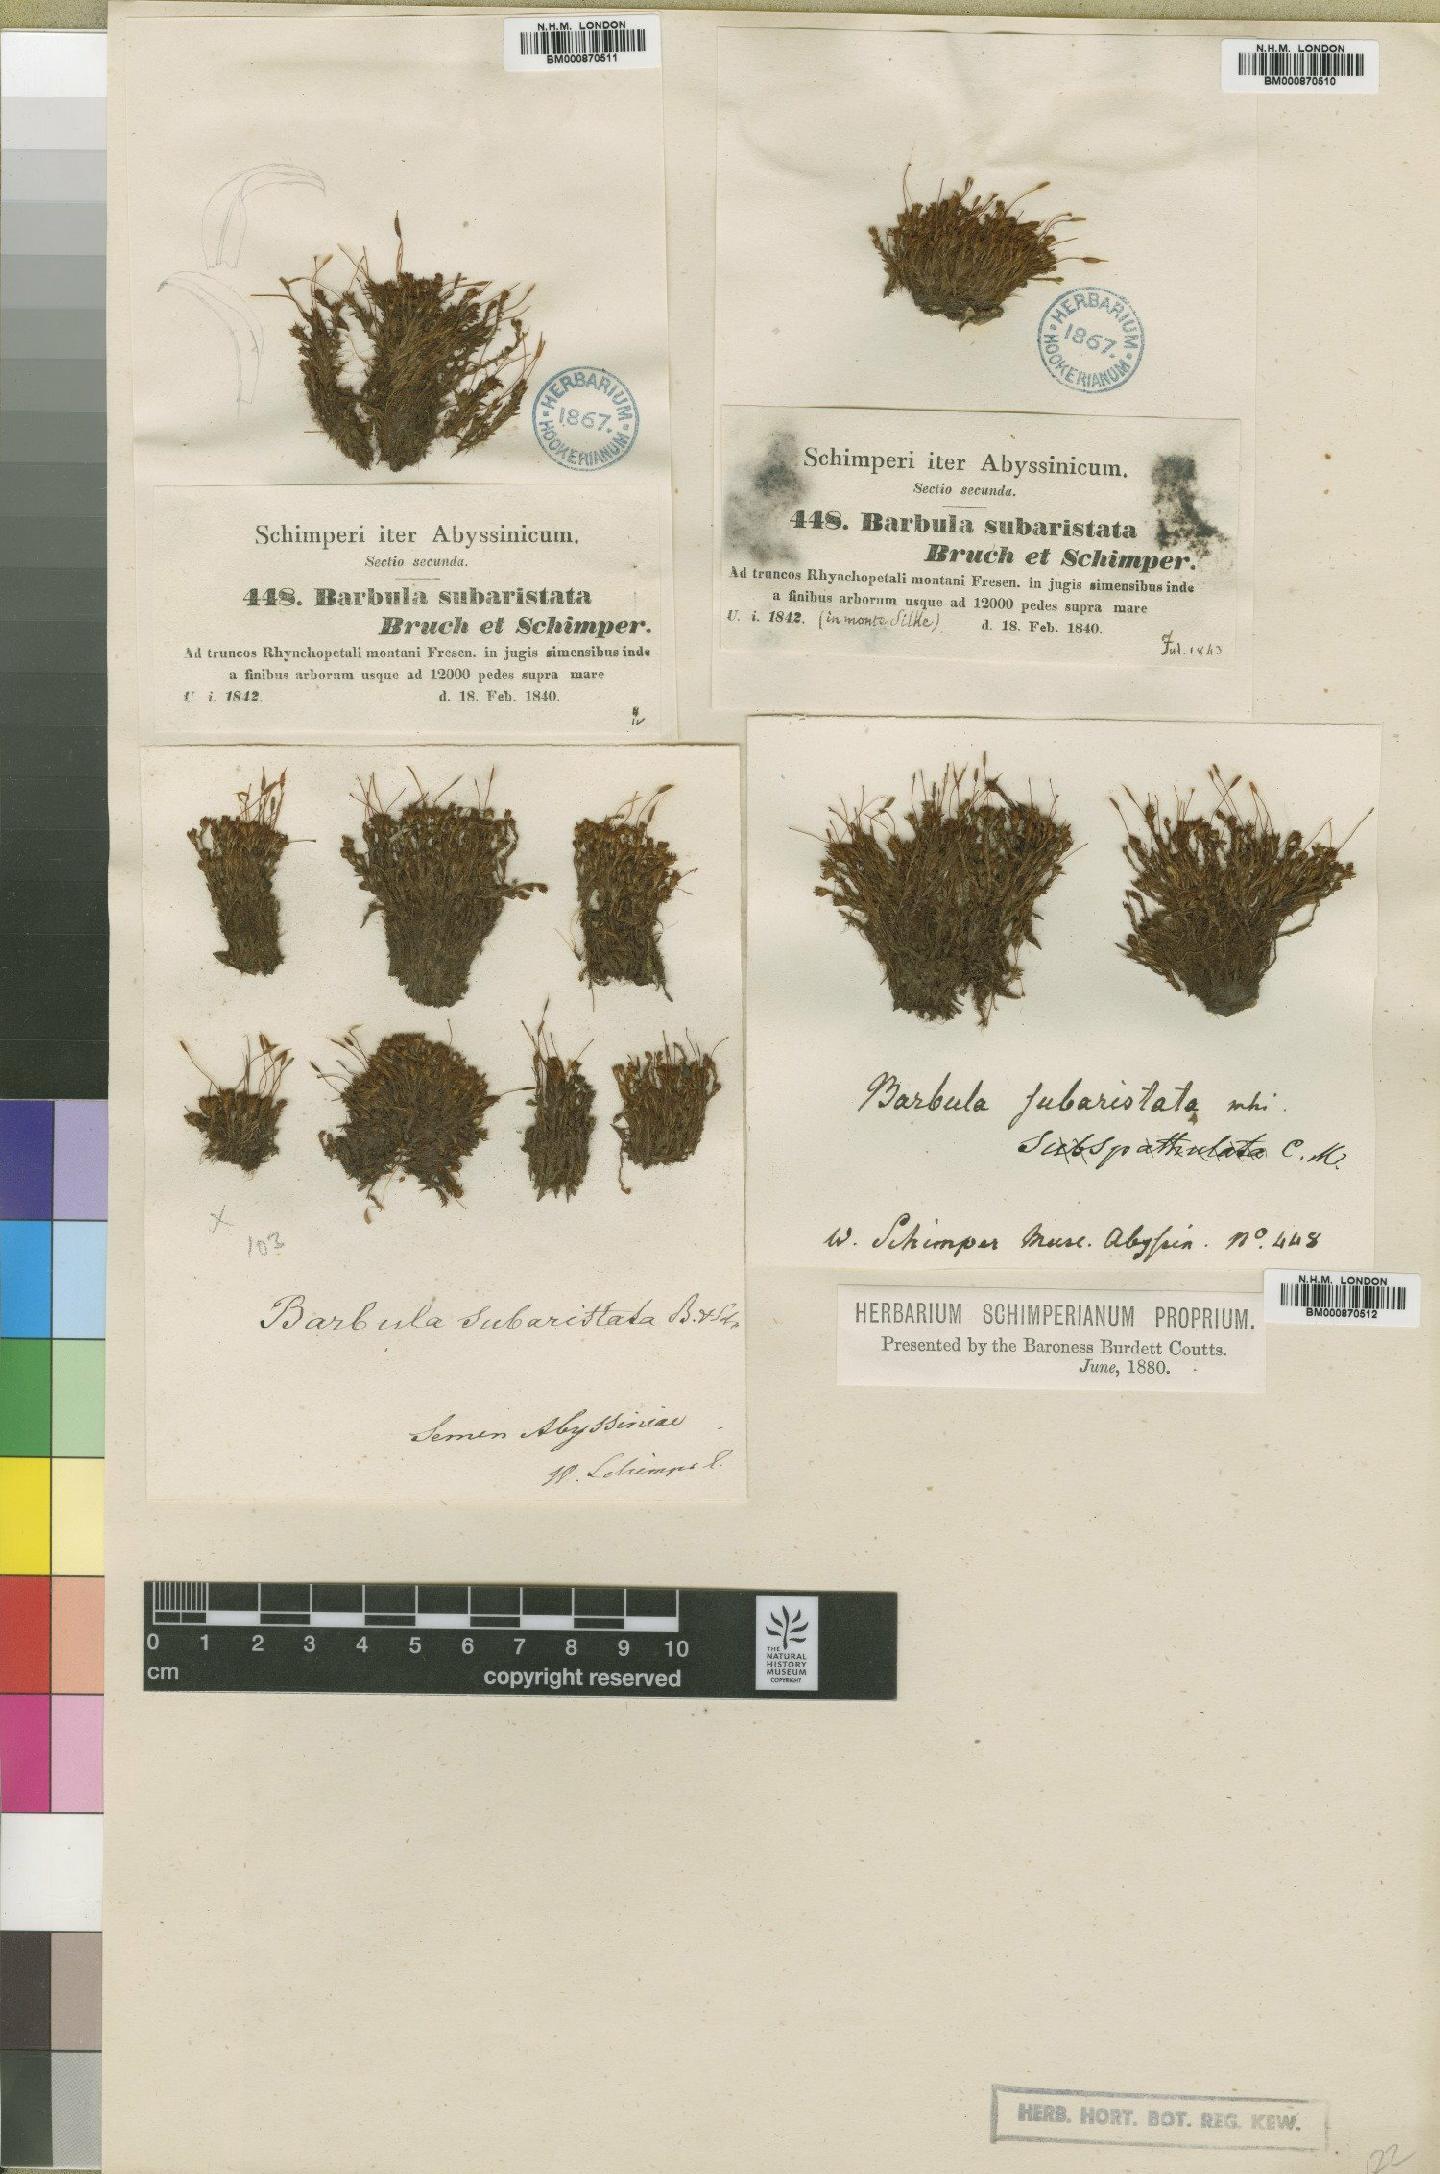 N.H.M. LONDON
BM000870511
HERBARIUM
1867.
HOOKERIANUM
Schimperi iter Abyssinicum.
Sectio secunda.
448. Barbula subaristata
Bruch et Schimper.
Ad truncos Rhynchopetali montani Fresen. in jugis simensibus inde
a finibus arborum usque ad 12000 pedes supra mare
U. i. 1842. d. 18. Feb. 1840.
N.H.M. LONDON
BM000870510
HERBARIUM
1867.
HOOKERIANUM
Schimperi iter Abyssinicum.
Sectio secunda.
448. Barbula subaristata
Bruch et Schimper.
Ad truncos Rhynchopetali montani Fresen. in jugis simensibus inde
a finibus arborum usque ad 12000 pedes supra mare
U. i. 1842. (in monte Silke) d. 18. Feb. 1840.
Jul. 1843
x
103
Barbula subaristata B. & Sch.
Semen Abyssiniae
W. Schimper l.
Barbula subaristata mhi.
subspathulata C. M.
W. Schimper Musc. Abyssin. No. 448
N.H.M. LONDON
BM000870512
HERBARIUM SCHIMPERIANUM PROPRIUM.
Presented by the Baroness Burdett Coutts.
June, 1880.
0 1 2 3 4 5 6 7 8 9 10
cm copyright reserved
THE
NATURAL
HISTORY
MUSEUM
COPYRIGHT
HERB. HORT. BOT. REG. KEW.
22